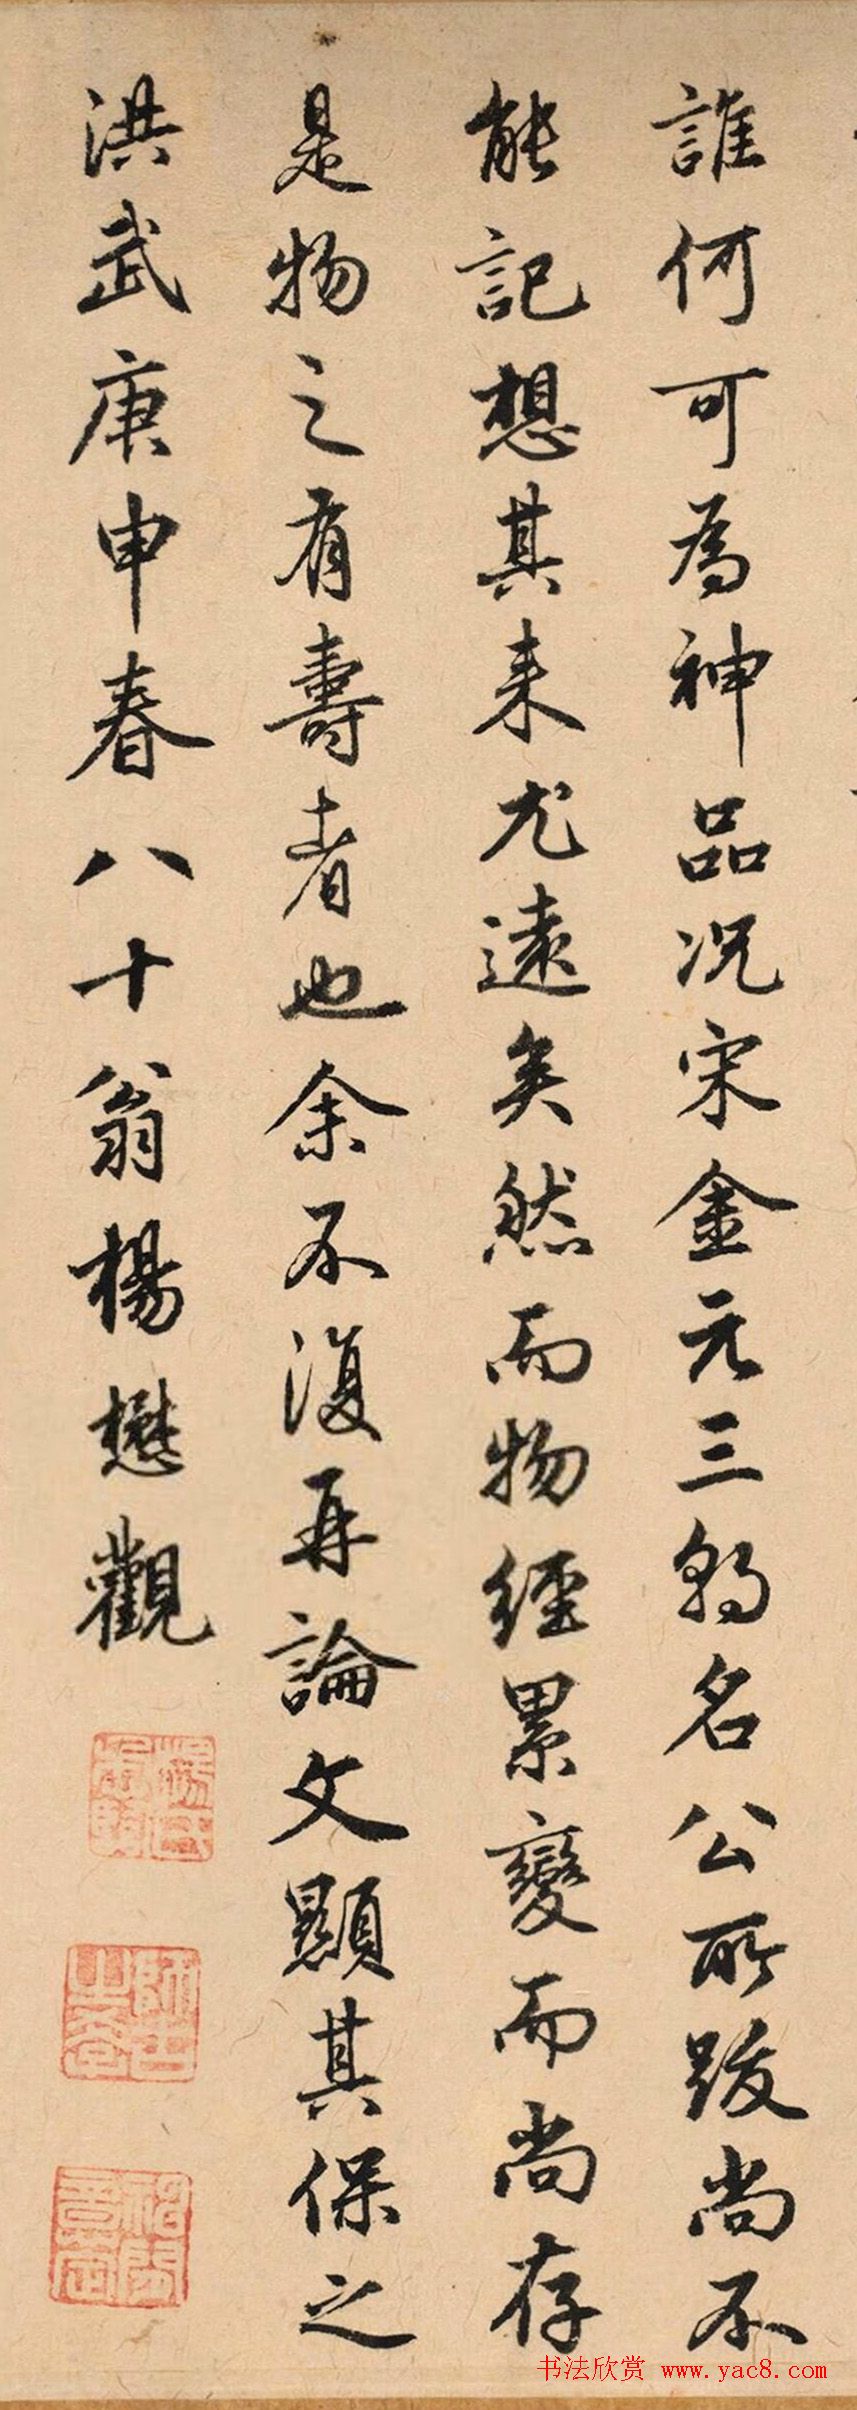 誰何可為神品况宋金元三朝名公所跋尚不
能記想其来尤遠矣然而物經累變而尚存
是物之有壽者也余不復再論文顯其保之
洪武庚申春八十翁楊懋觀
书法欣赏 www.yac8.com